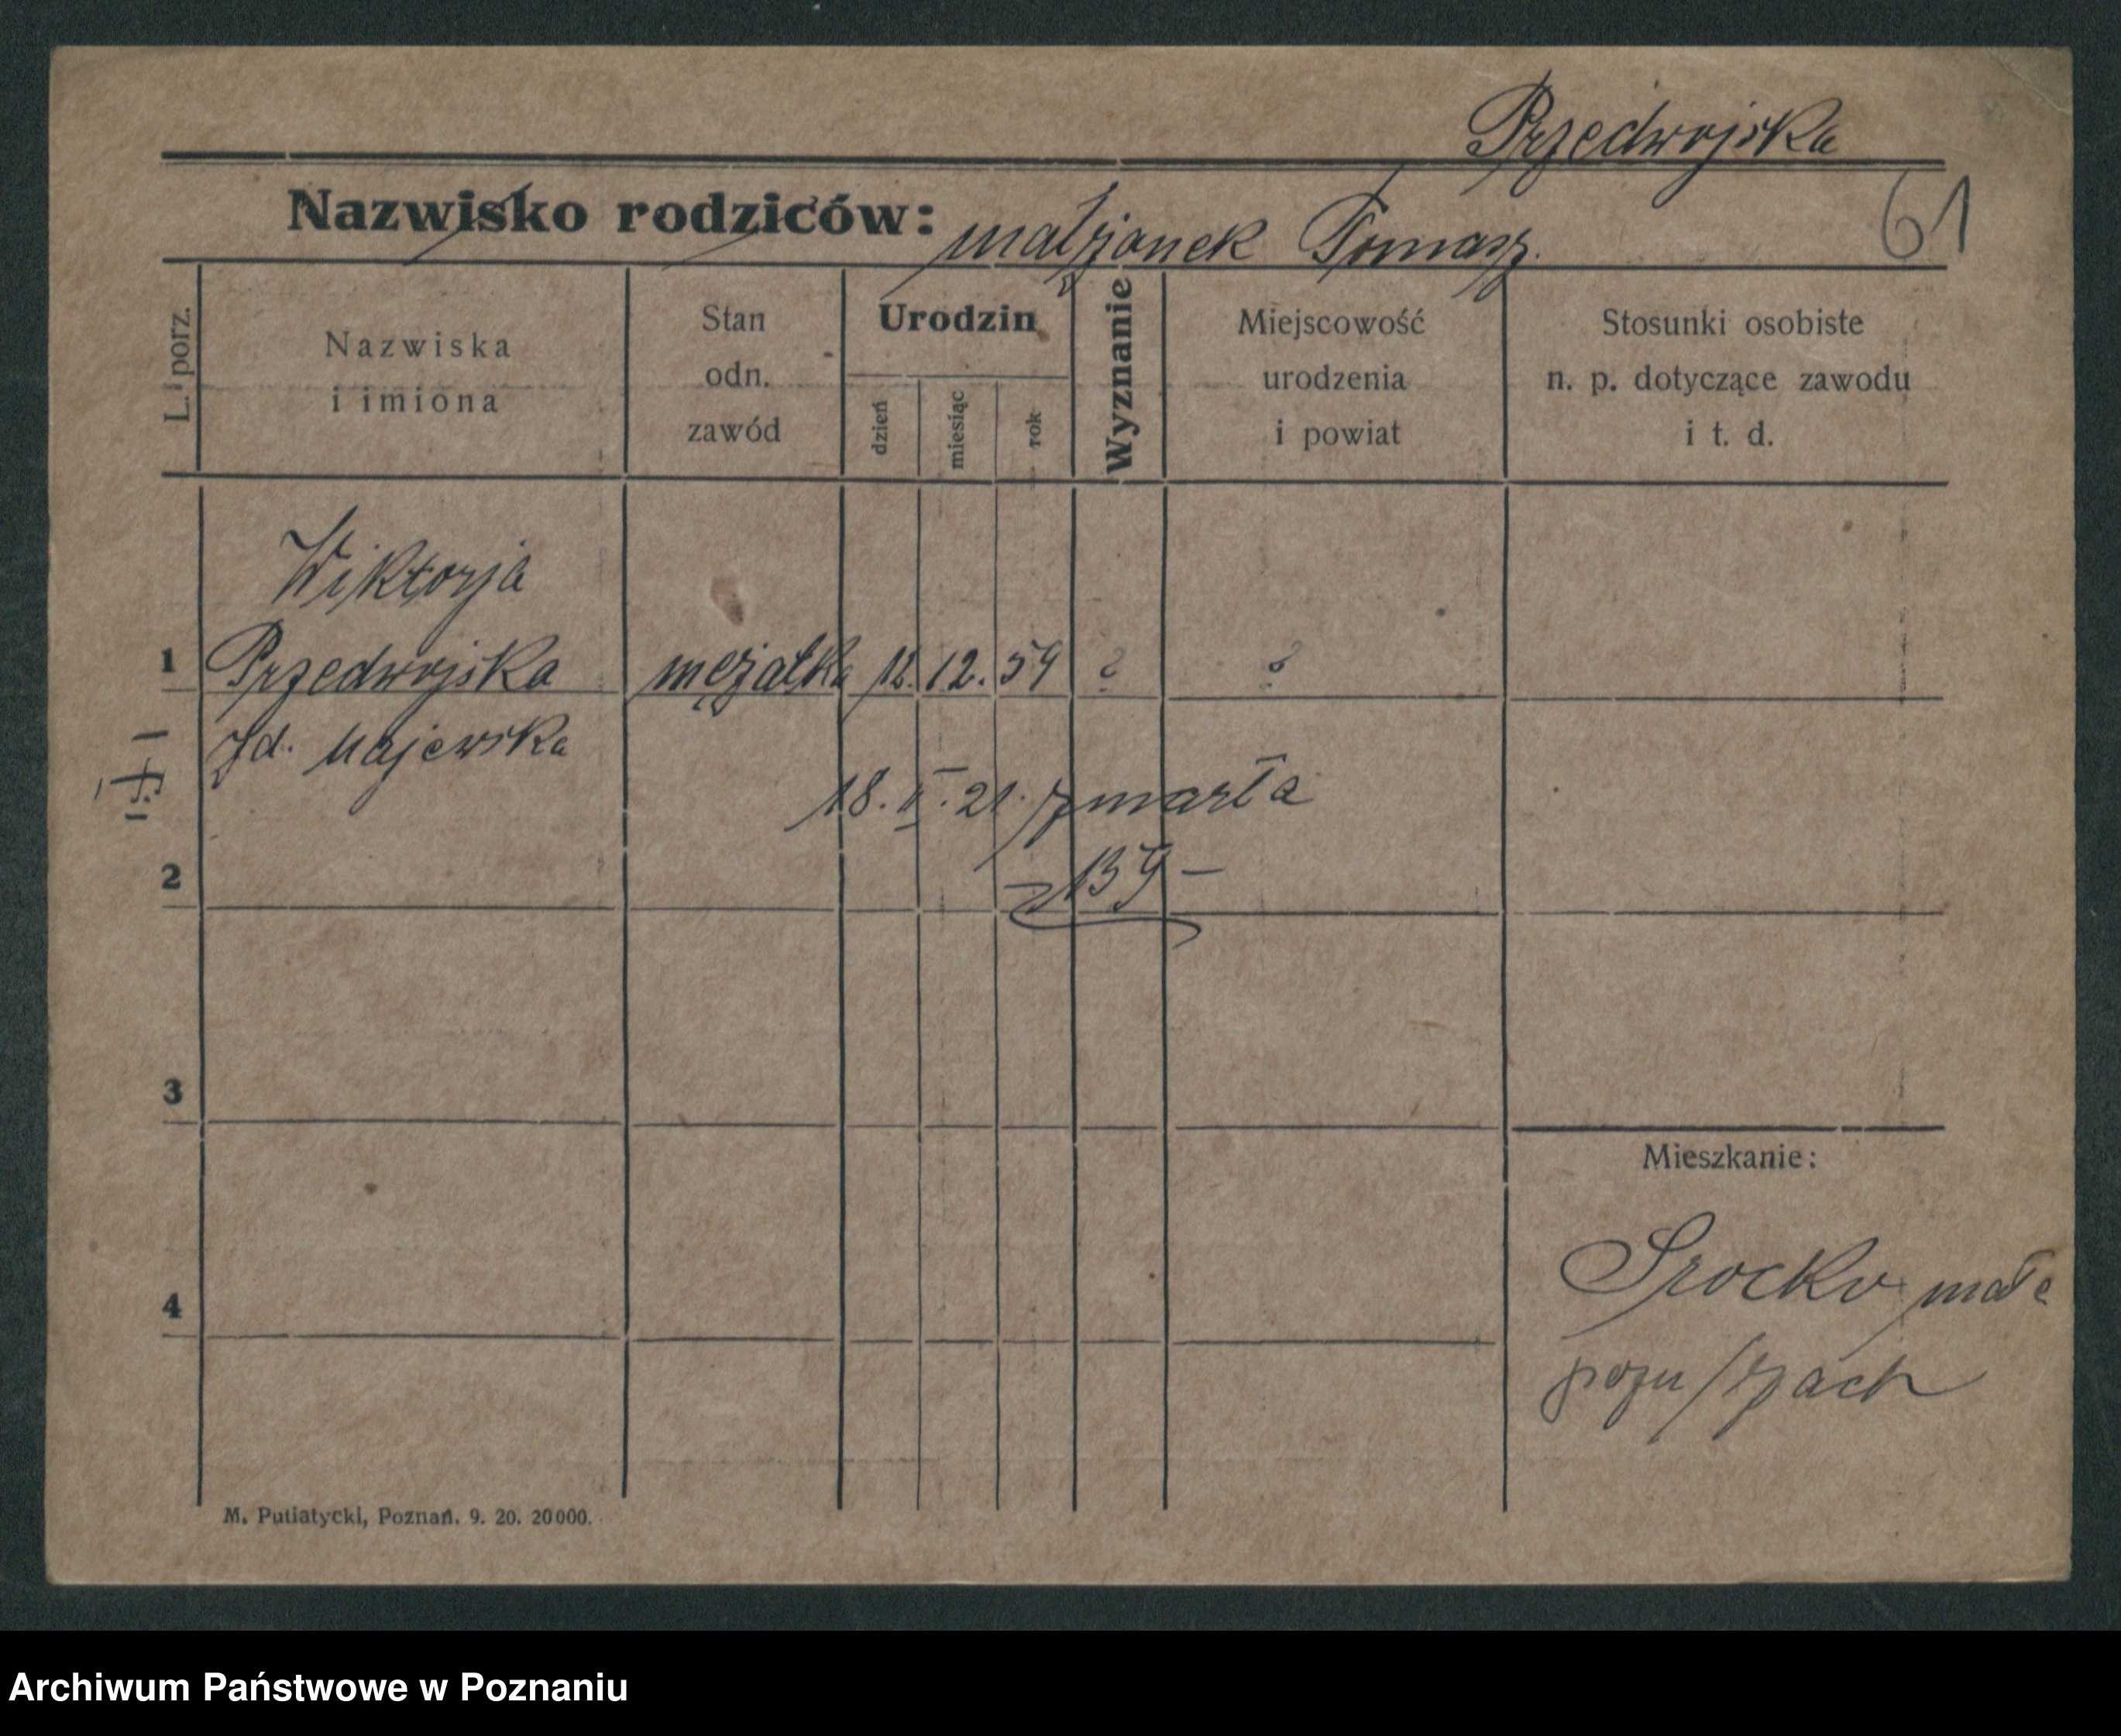 Przedwojska
Nazwisko rodziców: małżonek Tomasz.
61
L. porz.
Nazwiska
i imiona
Stan
odn.
zawód
Urodzin
dzień
miesiąc
rok
Wyznanie
Miejscowość
urodzenia
i powiat
Stosunki osobiste
n. p. dotyczące zawodu
i t. d.
Wiktorja
1 Przedwojska mężatka 12. 12. 54 ? ?
zd. Majewska
18. II. 21. zmarła
2
139 –
3
Mieszkanie:
4
Srocko małe
pozn/zach
M. Putiatycki, Poznań. 9. 20. 20000.
Archiwum Państwowe w Poznaniu